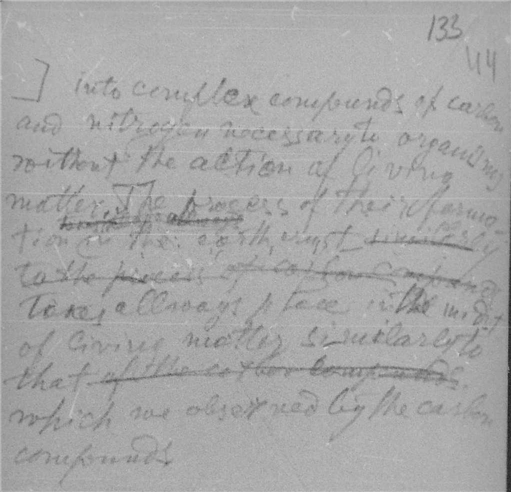 133
44
] into complex compounds of carbon
and nitrogen necessary to organisms
without the action of living
matter. The process of their forma-
tion in the earth crust similarly
to the process of carbon compounds
takes allways place in the midst
of living matter similarly to
that of the carbon compounds.
which we observed by the carbon
compounds.